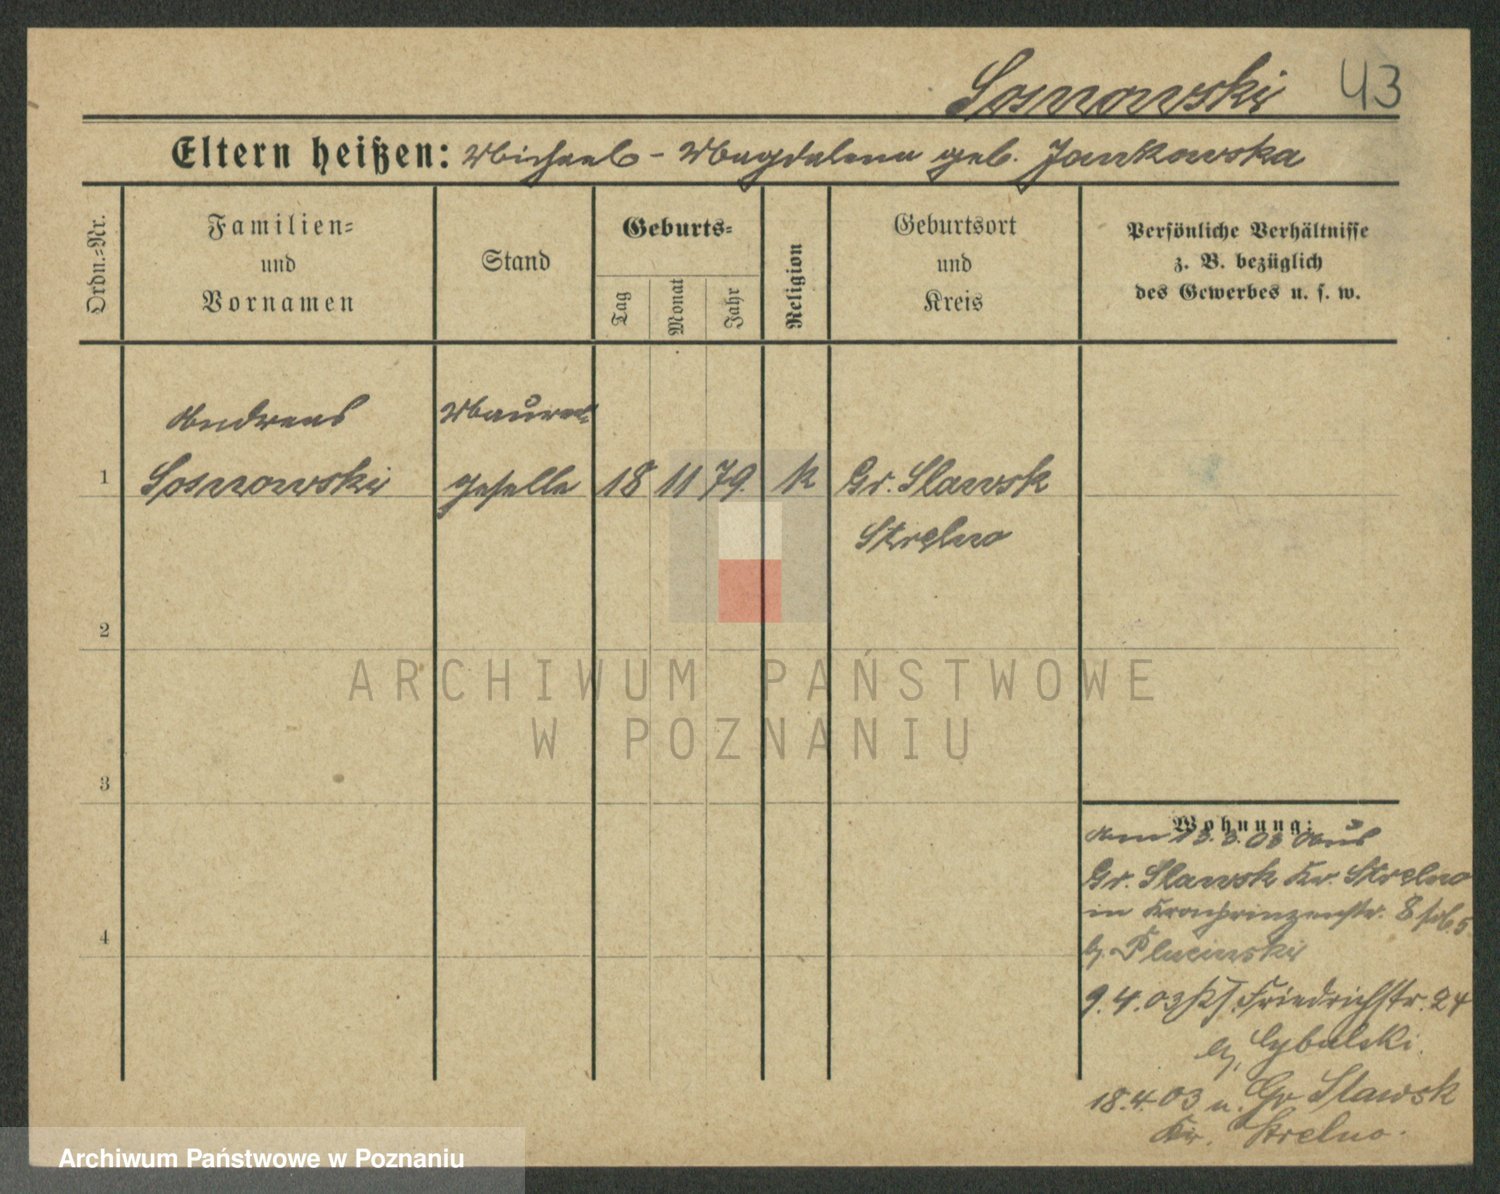 Sosnowski 43
Eltern heißen: Michael - Magdalena geb. Jankowska
Ordn.-Nr.
Familien-
und
Vornamen
Stand
Geburts-
Tag
Monat
Jahr
Religion
Geburtsort
und
Kreis
Persönliche Verhältnisse
z. B. bezüglich
des Gewerbes u. s. w.
Andreas Maurer-
1 Sosnowski geselle 18 11 79. k Gr. Slawsk
Strelno
2
ARCHIWUM PAŃSTWOWE
W POZNANIU
3
Wohnung:
Am 13.3.03 aus
Gr. Slawsk Kr. Strelno
in Kronprinzenstr. 8
b. Plucinski
4
9.4.03 Friedrichstr. 24
b. Cybulski.
18.4.03 n. Gr Slawsk
Kr. Strelno.
Archiwum Państwowe w Poznaniu